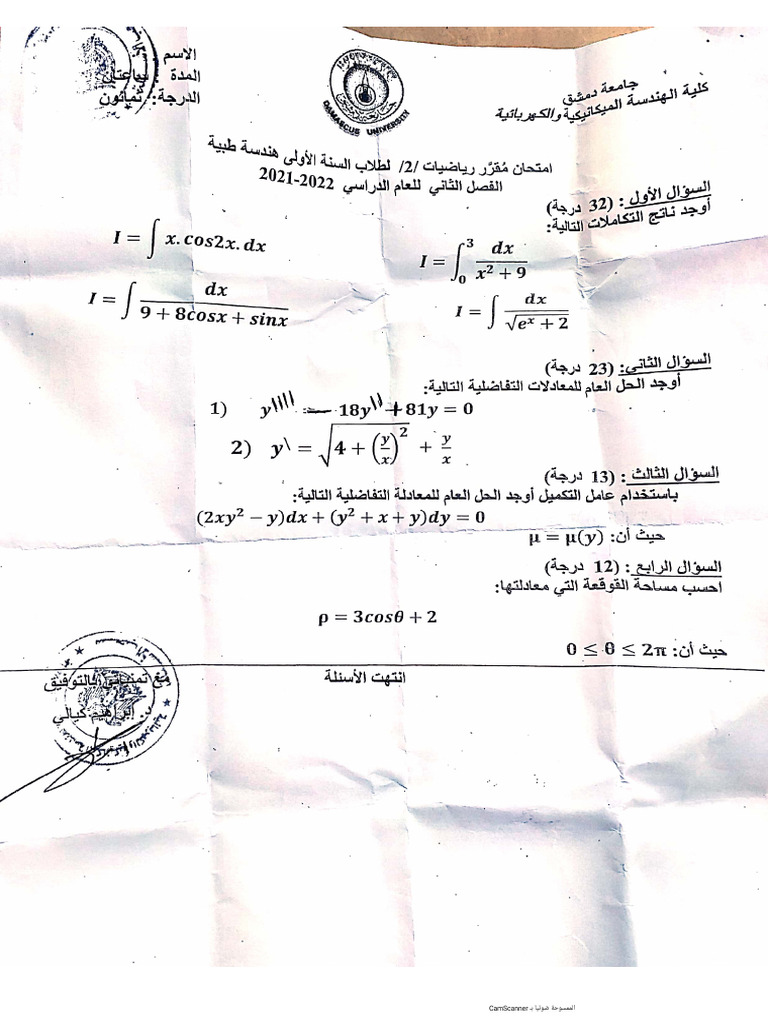 كلية الهندسة الميكانيكية والكهربائية
جامعة دمشق
DAMASCUS UNIVERSITY
الاسم :
المدة : ساعتان
الدرجة: ثمانون
امتحان مُقرَّر رياضيات /2/ لطلاب السنة الأولى هندسة طبية
الفصل الثاني للعام الدراسي 2021-2022
السؤال الأول : (32 درجة)
أوجد ناتج التكاملات التالية:
I = ∫ x.cos2x.dx
I = ∫₀³ dx / (x² + 9)
I = ∫ dx / (9 + 8cosx + sinx)
I = ∫ dx / √(eˣ + 2)
السؤال الثاني: (23 درجة)
أوجد الحل العام للمعادلات التفاضلية التالية:
1) y\\\\ − 18y\\ + 81y = 0
2) y\ = √(4 + (y/x)²) + y/x
السؤال الثالث : (13 درجة)
باستخدام عامل التكميل أوجد الحل العام للمعادلة التفاضلية التالية:
(2xy² − y)dx + (y² + x + y)dy = 0
حيث أن: μ = μ(y)
السؤال الرابع : (12 درجة)
احسب مساحة القوقعة التي معادلتها:
ρ = 3cosθ + 2
حيث أن: 0 ≤ θ ≤ 2π
انتهت الأسئلة
مع تمنياتي بالتوفيق
د. إبراهيم كيالي
الممسوحة ضوئيا بـ CamScanner